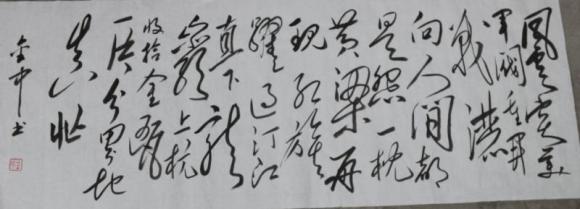 风云突变
军阀重开
战洒
向人间都
是怨一枕
黄粱再
现红旗
跃过汀江
直下龙
岩上杭
收拾金瓯
一片分田分地
真忙
书